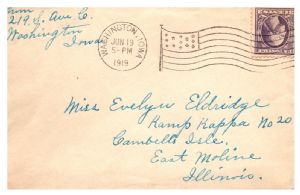 219. J. Ave C.
Washington
Iowa
WASHINGTON, IOWA
JUN 19
5-PM
1919
Miss Evelyn Eldridge
Kamp Kappa No 20
Cambells Isle.
East Moline
Illinois.